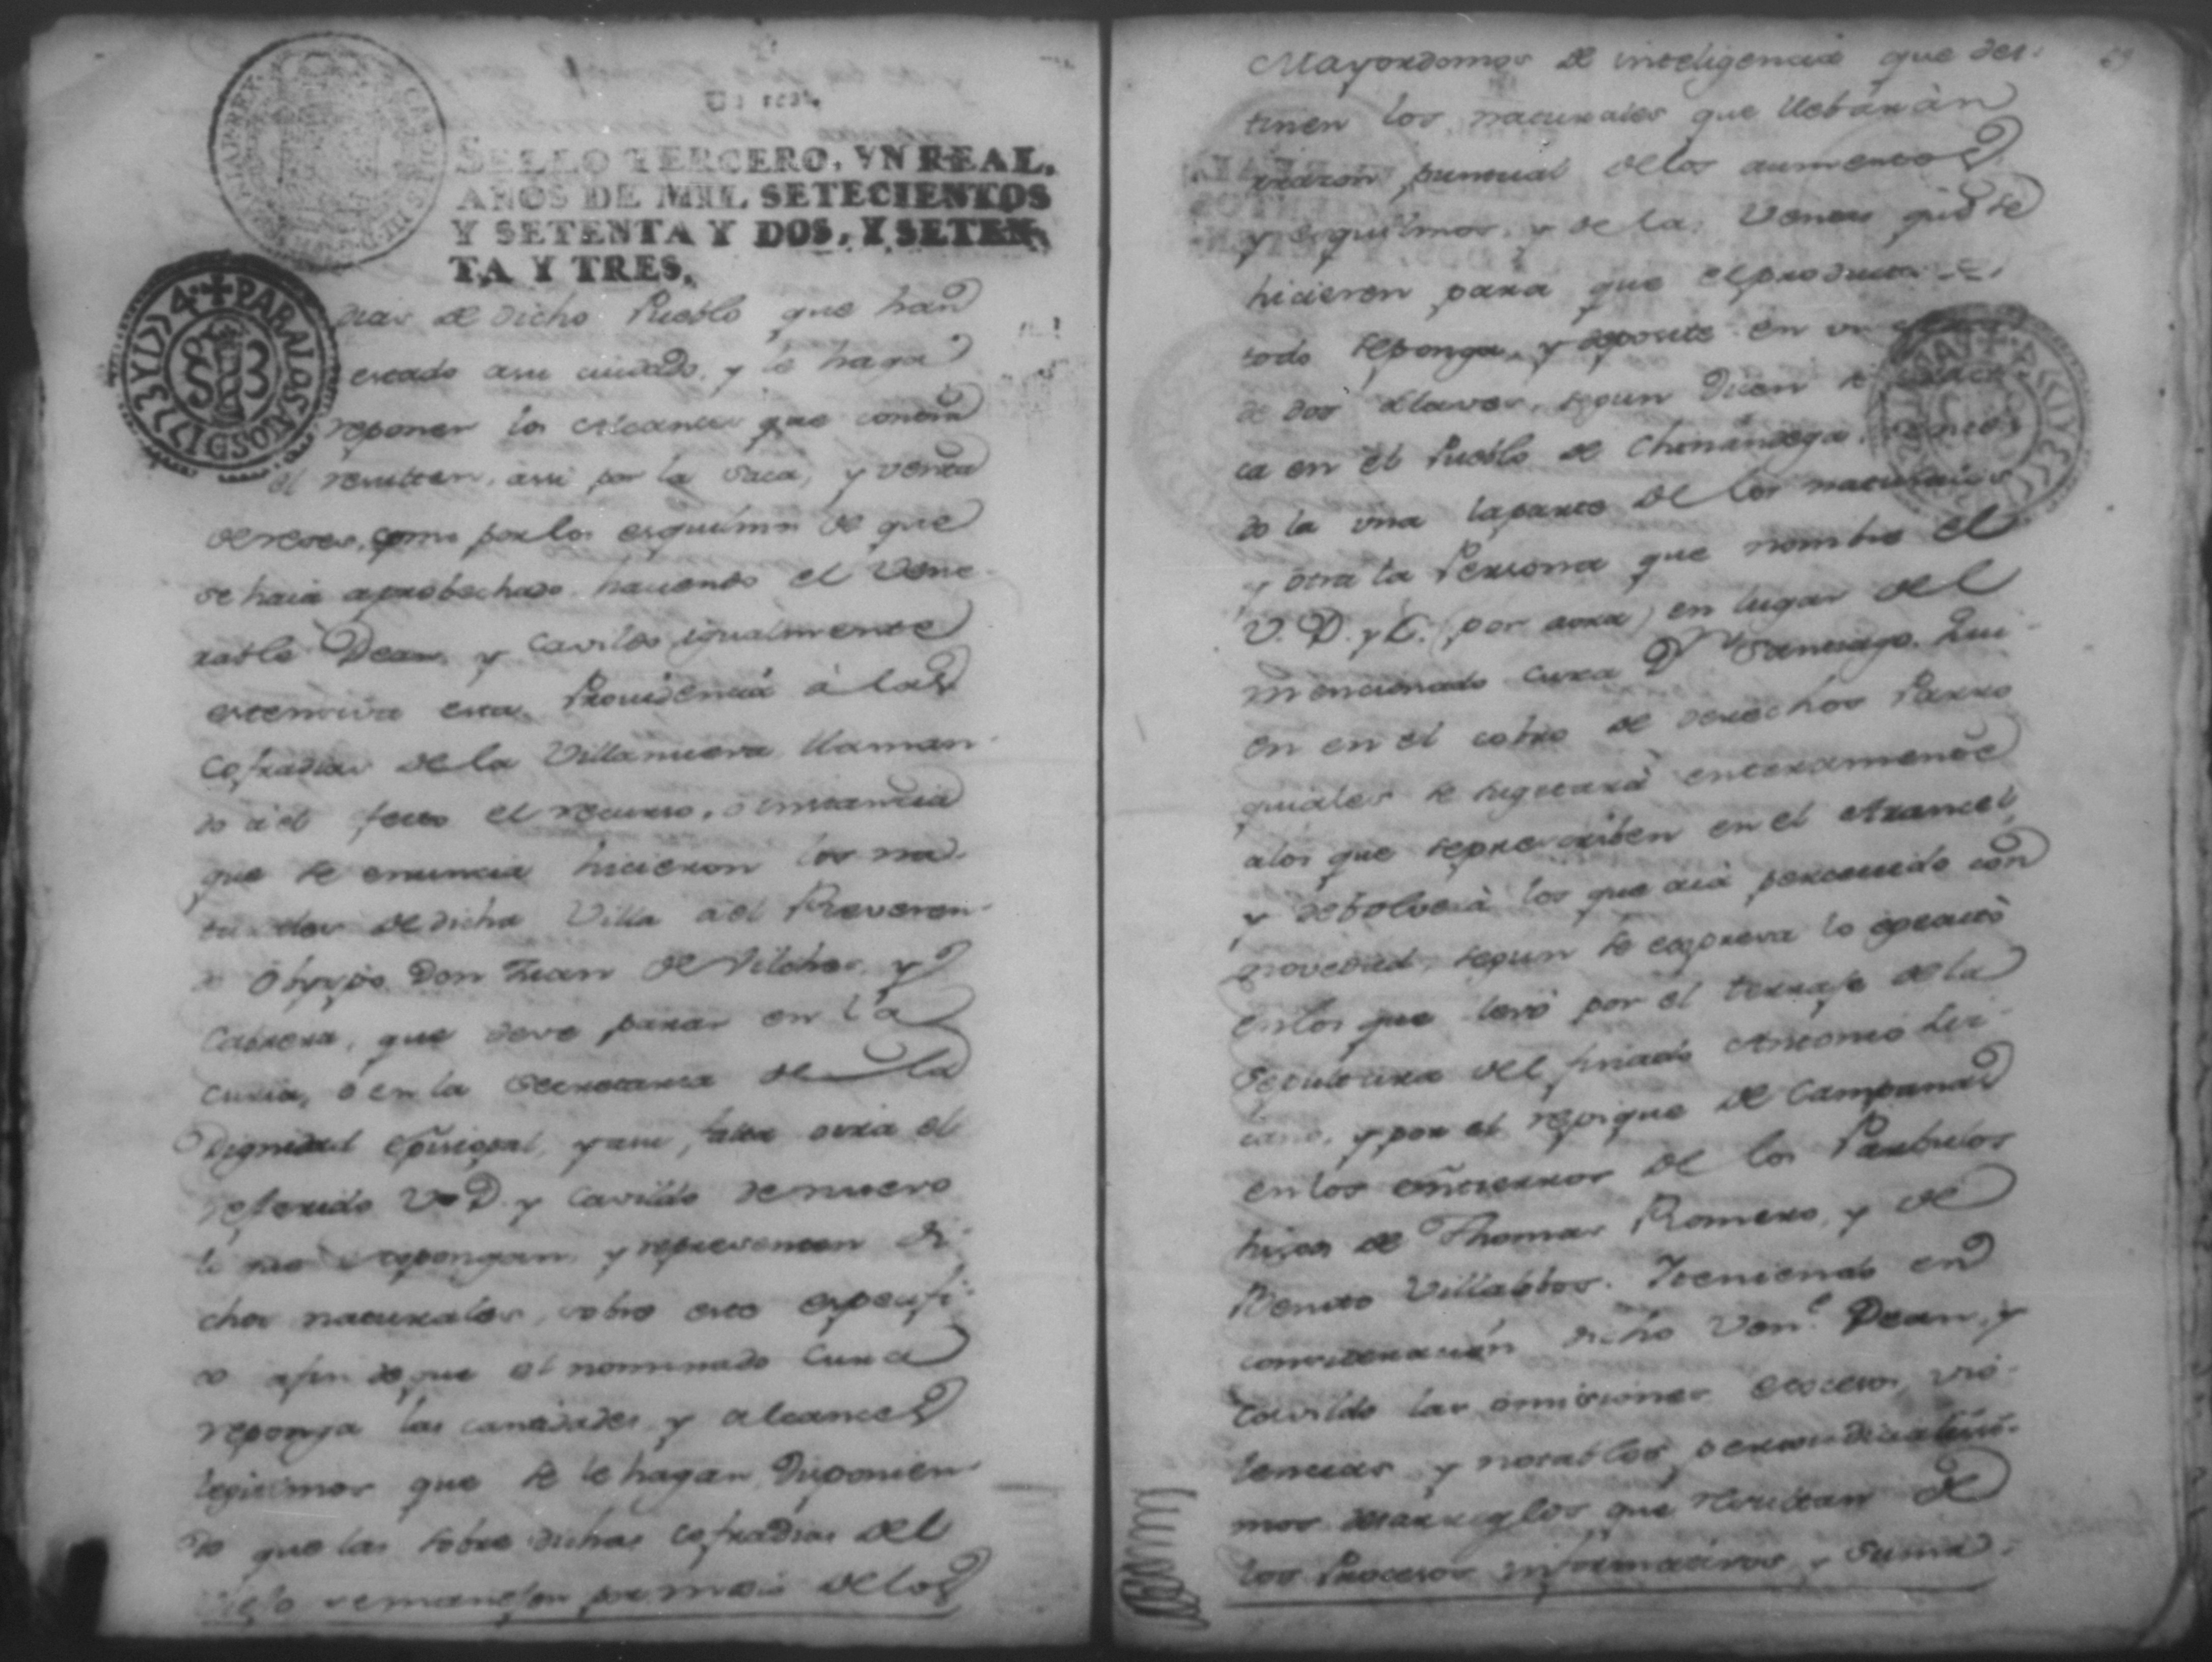 Un real.
SELLO TERCERO, VN REAL,
AÑOS DE MIL SETECIENTOS
Y SETENTA Y DOS, Y SETEN-
TA Y TRES.
PARA LOS AÑOS
drias de dicho Pueblo que han
estado asu cuidado, y le haga
reponer los Alcances que contra
el resulten, assi por la saca, y venta
de reses, como por los esquilmos de que
se haia aprobechado haciendo el Vene-
rable Dean, y Cavildo igualmente
extensiva esta Providencia à las
Cofradias de la Villanueva llaman-
do a el fecto el recurso, o instancia
que se enuncia hicieron los na-
turales de dicha Villa a el Reveren-
do Obispo Don Juan de Vilches, y
Cabrera, que deve parar en la
Curia, ò en la Secretaria de la
Dignidad Episcopal, y assi, oirá el
referido V. D. y Cavildo de nuevo
lo que expongan, y representen di-
chos naturales, sobre este especifi-
co afin de que el nominado Cura
reponga las cantidades, y alcances
legitimos que se le hagan, Disponien-
do que las sobre dichas Cofradias del
Viejo se manejen por medio de los
Mayordomos de inteligencia que des-
tinen los naturales que llebaràn
razon puntual de los aumentos
y esquilmos, y de las Ventas que se
hicieren para que el producto de
todo se ponga, y deposite en un
de dos llaves, segun Dicen se
ca en el Pueblo de Chinandega,
do la una la parte de los naturales
y otra la Persona que nombre el
V. D. y C. (por aora) en lugar del
mencionado cura Dn Santiago. Qui-
en en el cobro de derechos Parro
quiales se sugetará enteramente
alos que se prescriben en el Arancel,
y debolverà los que aia percevido con
novedad, segun se expresa lo executò
en los que levò por el terrage de la
Sepultura del finado Antonio
y por el repique de Campanas
en los entierros de los Parbulos
hijos de Thomas Romero, y de
Benito Villalobos. Y teniendo en
consideracion dicho Vene. Dean, y
Cavildo las omisiones excesos, vio-
lencias y notables perjudicialisi-
mos desarreglos que resultan de
los Procesos informativos, y suma-